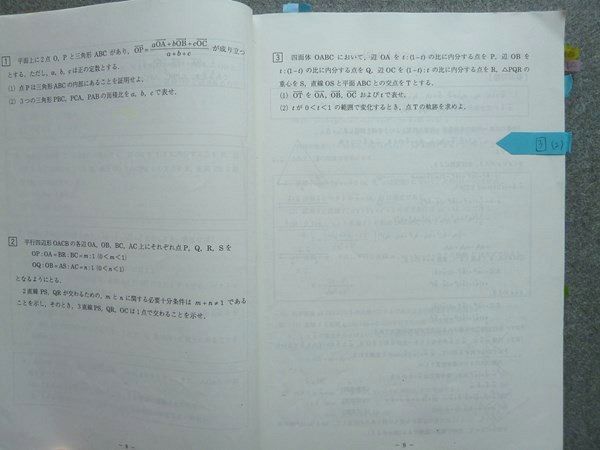 1 平面上に2点O, Pと三角形ABCがあり, OP=aOA+bOB+cOC/a+b+c が成り立つ
とする. ただし, a, b, cは正の定数とする.
(1) 点Pは三角形ABCの内部にあることを証明せよ.
(2) 3つの三角形PBC, PCA, PABの面積比をa, b, cで表せ.
2 平行四辺形OACBの各辺OA, OB, BC, AC上にそれぞれ点P, Q, R, Sを
OP:OA=BR:BC=m:1 (0<m<1)
OQ:OB=AS:AC=n:1 (0<n<1)
となるようにとる.
2直線PS, QRが交わるための, mとnに関する必要十分条件は m+n≠1 である
ことを示し, そのとき, 3直線PS, QR, OCは1点で交わることを示せ.
- 8 -
3 四面体OABCにおいて, 辺OAをt:(1-t)の比に内分する点をP, 辺OBを
t:(1-t)の比に内分する点をQ, 辺OCを(1-t):tの比に内分する点をR, △PQRの
重心をS, 直線OSと平面ABCとの交点をTとする.
(1) OTをOA, OB, OCおよびtで表せ.
(2) tが0<t<1の範囲で変化するとき, 点Tの軌跡を求めよ.
3 (2)
- 9 -